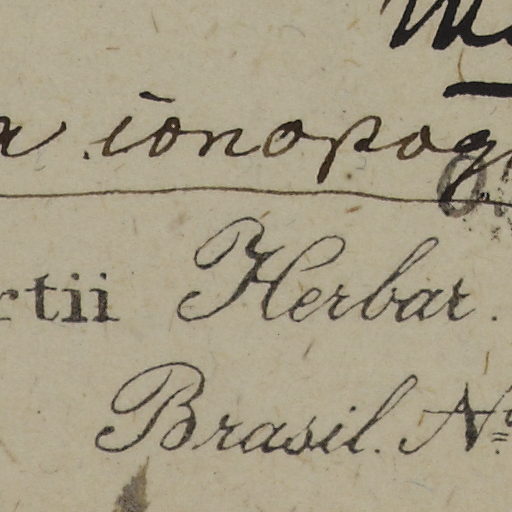 ionopog
rtii Herbar.
Brasil. Nº